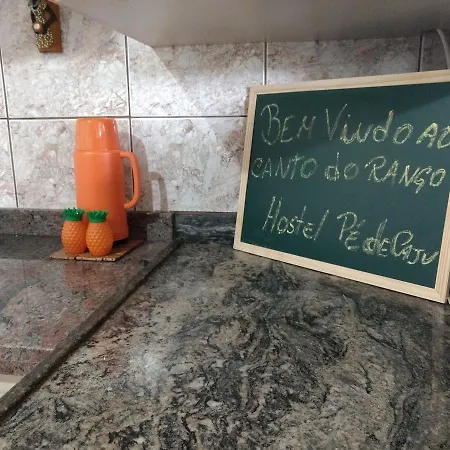 BEM Vindo AO
CANTO do RANGO
Hostel Pé de Caju